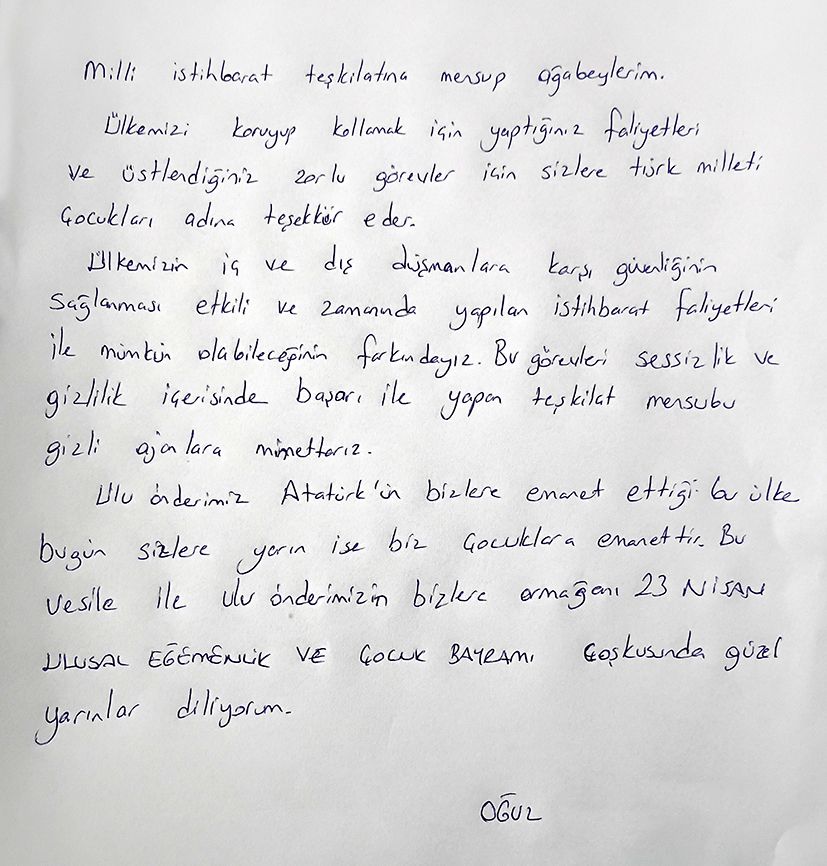 Milli istihbarat teşkilatına mensup ağabeylerim.
Ülkemizi koruyup kollamak için yaptığınız faliyetleri
ve üstlendiğiniz zorlu görevler için sizlere türk milleti
çocukları adına teşekkür eder.
Ülkemizin iç ve dış düşmanlara karşı güvenliğinin
sağlanması etkili ve zamanında yapılan istihbarat faliyetleri
ile mümkün olabileceğinin farkındayız. Bu görevleri sessizlik ve
gizlilik içerisinde başarı ile yapan teşkilat mensubu
gizli ajanlara minnettarız.
Ulu önderimiz Atatürk'ün bizlere emanet ettiği bu ülke
bugün sizlere yarın ise biz çocuklara emanettir. Bu
vesile ile ulu önderimizin bizlere armağanı 23 NİSAN
ULUSAL EĞEMENLİK VE ÇOCUK BAYRAMI coşkusunda güzel
yarınlar diliyorum.
OĞUZ